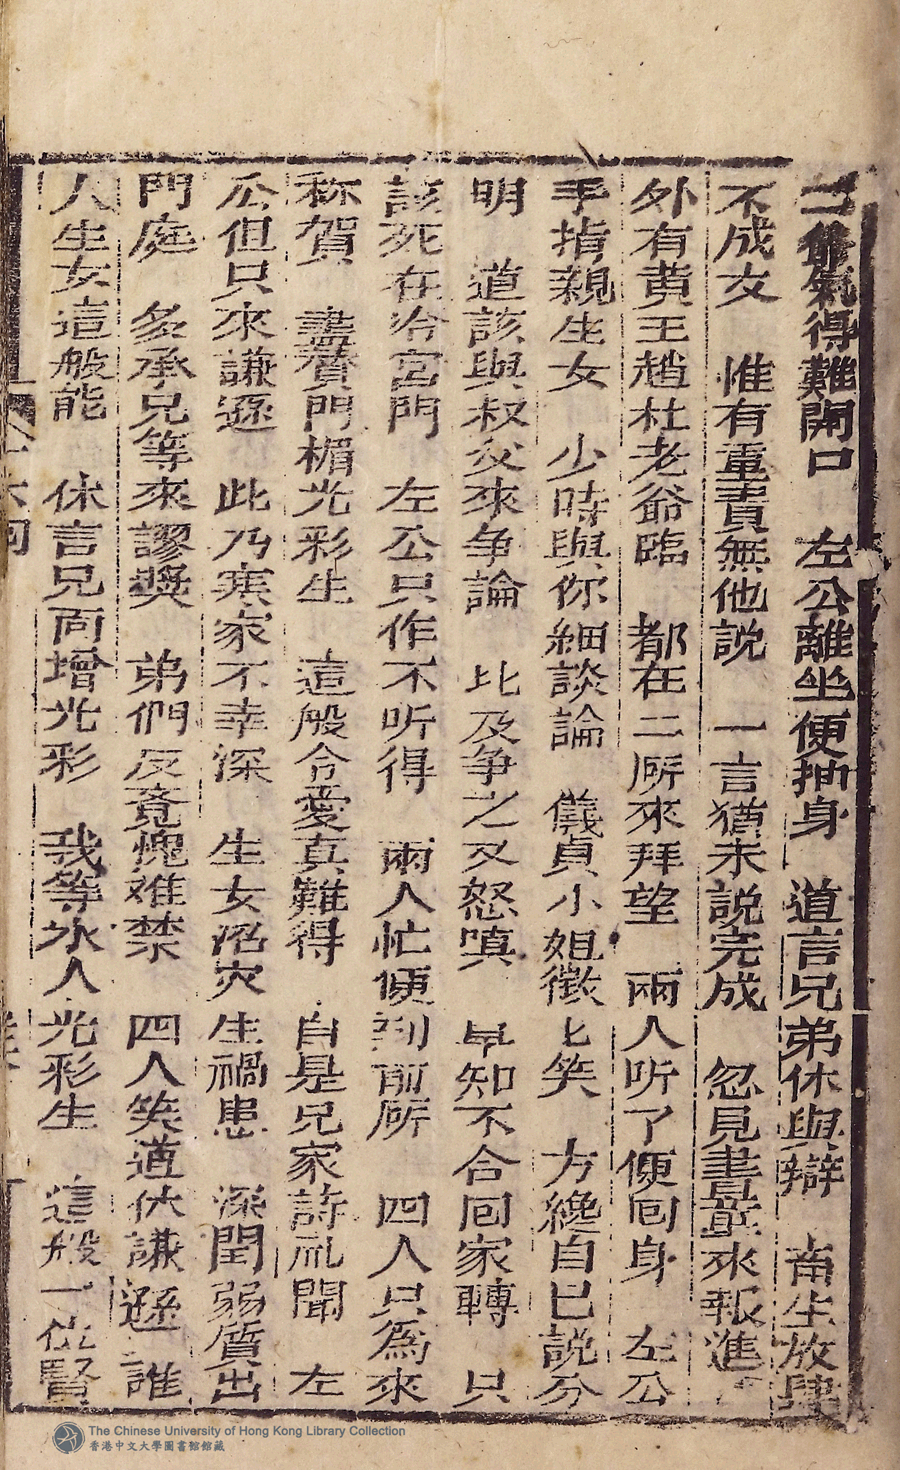 二爺氣得難開口　左公離坐便抽身　道言兄弟休與辯　畜生放肆
不成文　惟有重責無他説　一言猶未説完成　忽見書童來報進
外有黄王趙杜老爺臨　都在二所來拜望　兩人听了便回身　左公
手指親生女　少時與你細談論　儀貞小姐微匕笑　方纔自已説分
明　道該與叔父來争論　比及争之又怒嗔　早知不合回家轉　只
該死在冷宫門　左公只作不听得　兩人忙便到前所　四人只為來
称賀　盡賛門楣光彩生　這般令愛真難得　自是兄家詩礼聞　左
公但只來謙遜　此乃寒家不幸深　生女滔灾生禍患　深閨弱質出
門庭　多承兄等來謬奬　弟們反覺愧难禁　四人笑道休謙遜　誰
人生女這般能　休言兄面增光彩　我等氷人光彩生　這般一位賢
The Chinese University of Hong Kong Library Collection
香港中文大學圖書館館藏